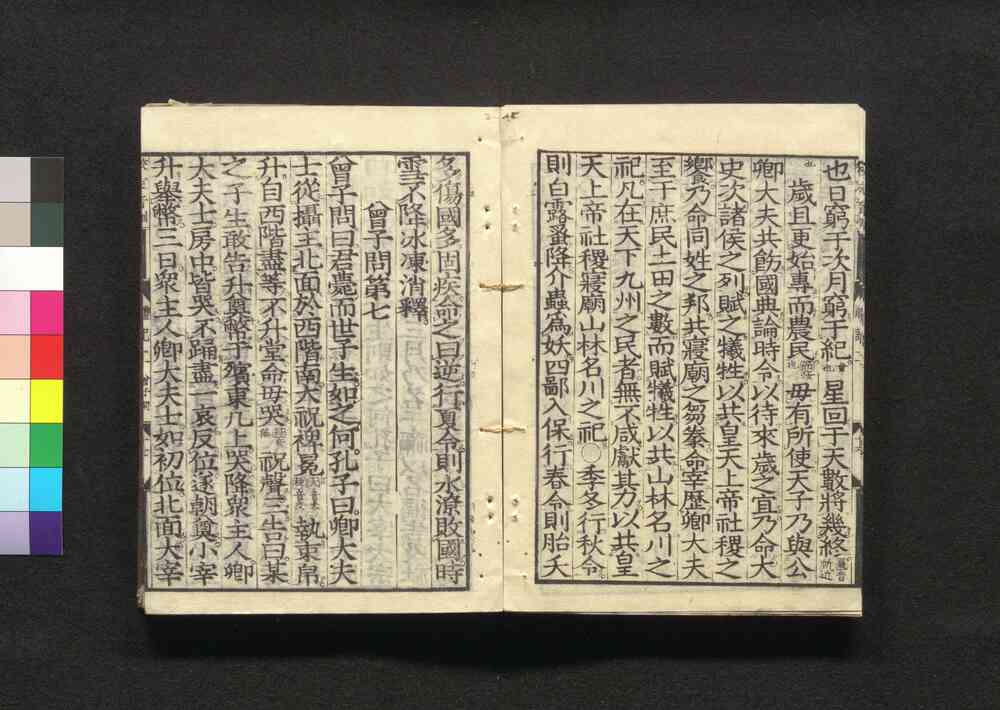 也日窮于次月窮于紀會也星回于天數將幾終
也歲且更始專而農民毋有所使天子乃與公
卿大夫共飭國典論時令以待來歲之宜乃命大
史次諸侯之列賦之犧牲以共皇天上帝社稷之
饗乃命同姓之邦共寢廟之芻豢命宰歷卿大夫
至于庶民土田之數而賦犧牲以共山林名川之
祀凡在天下九州之民者無不咸獻其力以共皇
天上帝社稷寢廟山林名川之祀○季冬行秋令
則白露蚤降介蟲爲妖四鄙入保行春令則胎夭
多傷國多固疾命之曰逆行夏令則水潦敗國時
雪不降冰凍消釋
曾子問第七
曾子問曰君薨而世子生如之何孔子曰卿大夫
士從攝主北面於西階南大祝裨冕執束帛
升自西階盡等不升堂命毋哭祝聲三告曰某
之子生敢告升奠幣于殯東几上哭降衆主人卿
大夫士房中皆哭不踊盡一哀反位遂朝奠小宰
升舉幣三日衆主人卿大夫士如初位北面大宰